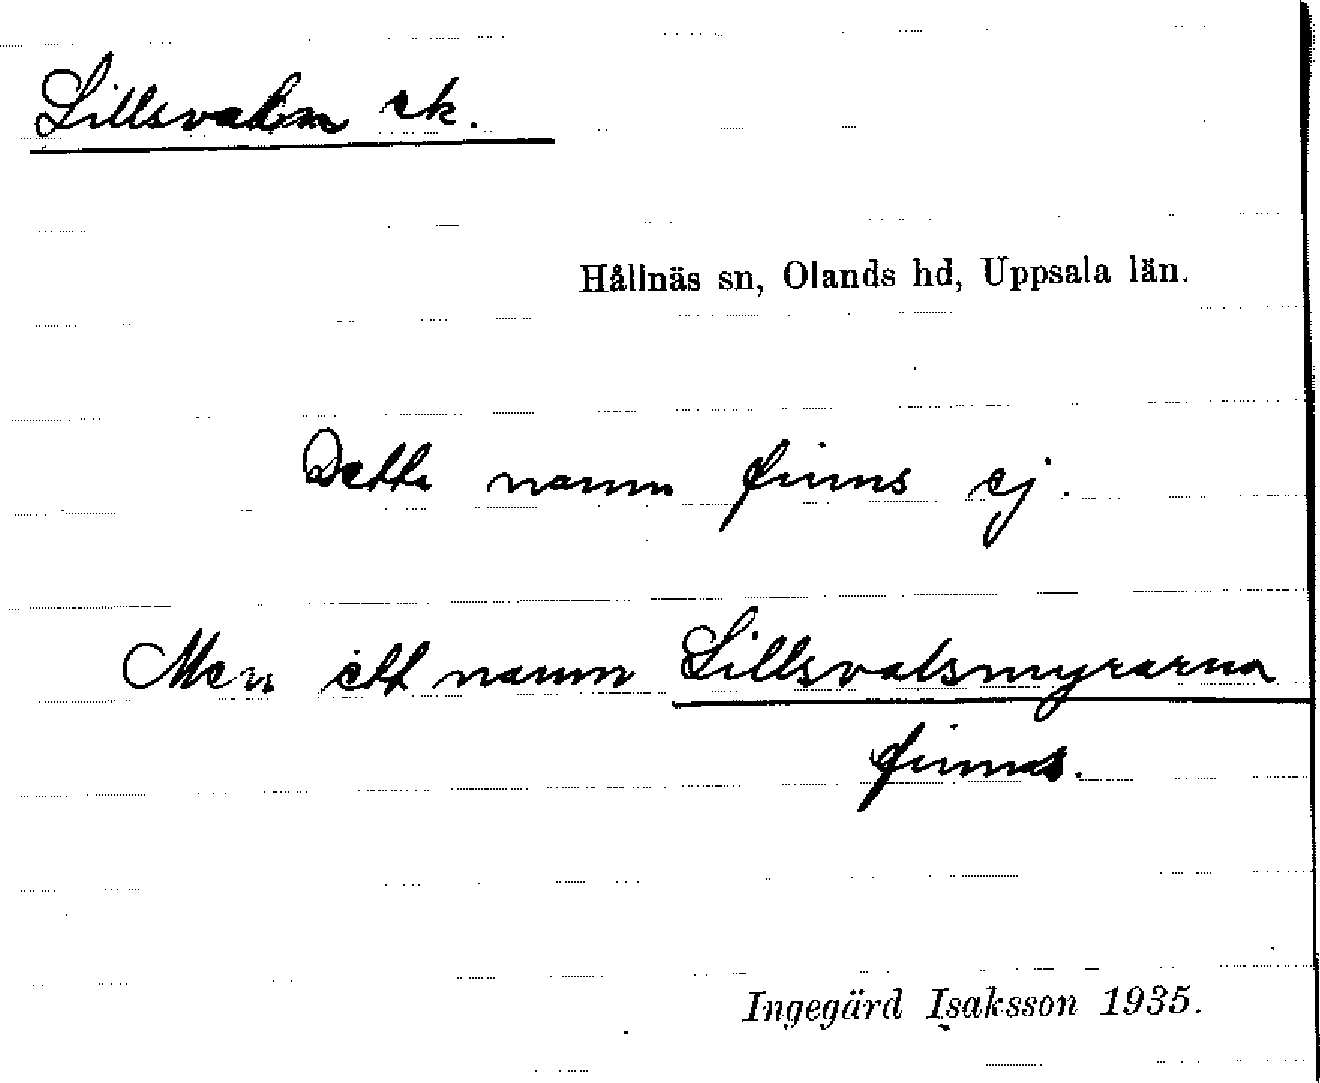 Lillsvalen sk.
Hållnäs sn, Olands hd, Uppsala län.
Detta namn finns ej.
Men ett namn Lillsvalsmyrarna
finns.
Ingegärd Isaksson 1935.